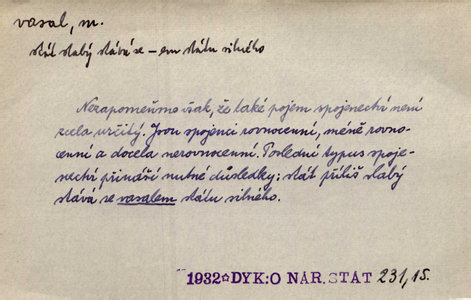 vasal, m.
stát slabý stává se – em státu silného
Nezapomeňme však, že také pojem spojenectví není
zcela určitý. Jsou spojenci rovnocenní, méně rovno-
cenní a docela nerovnocenní. Poslední typus spoje-
nectví přináší nutné důsledky: stát příliš slabý
stává se vasalem státu silného.
1932☆DYK:O NÁR. STÁT 231,15.